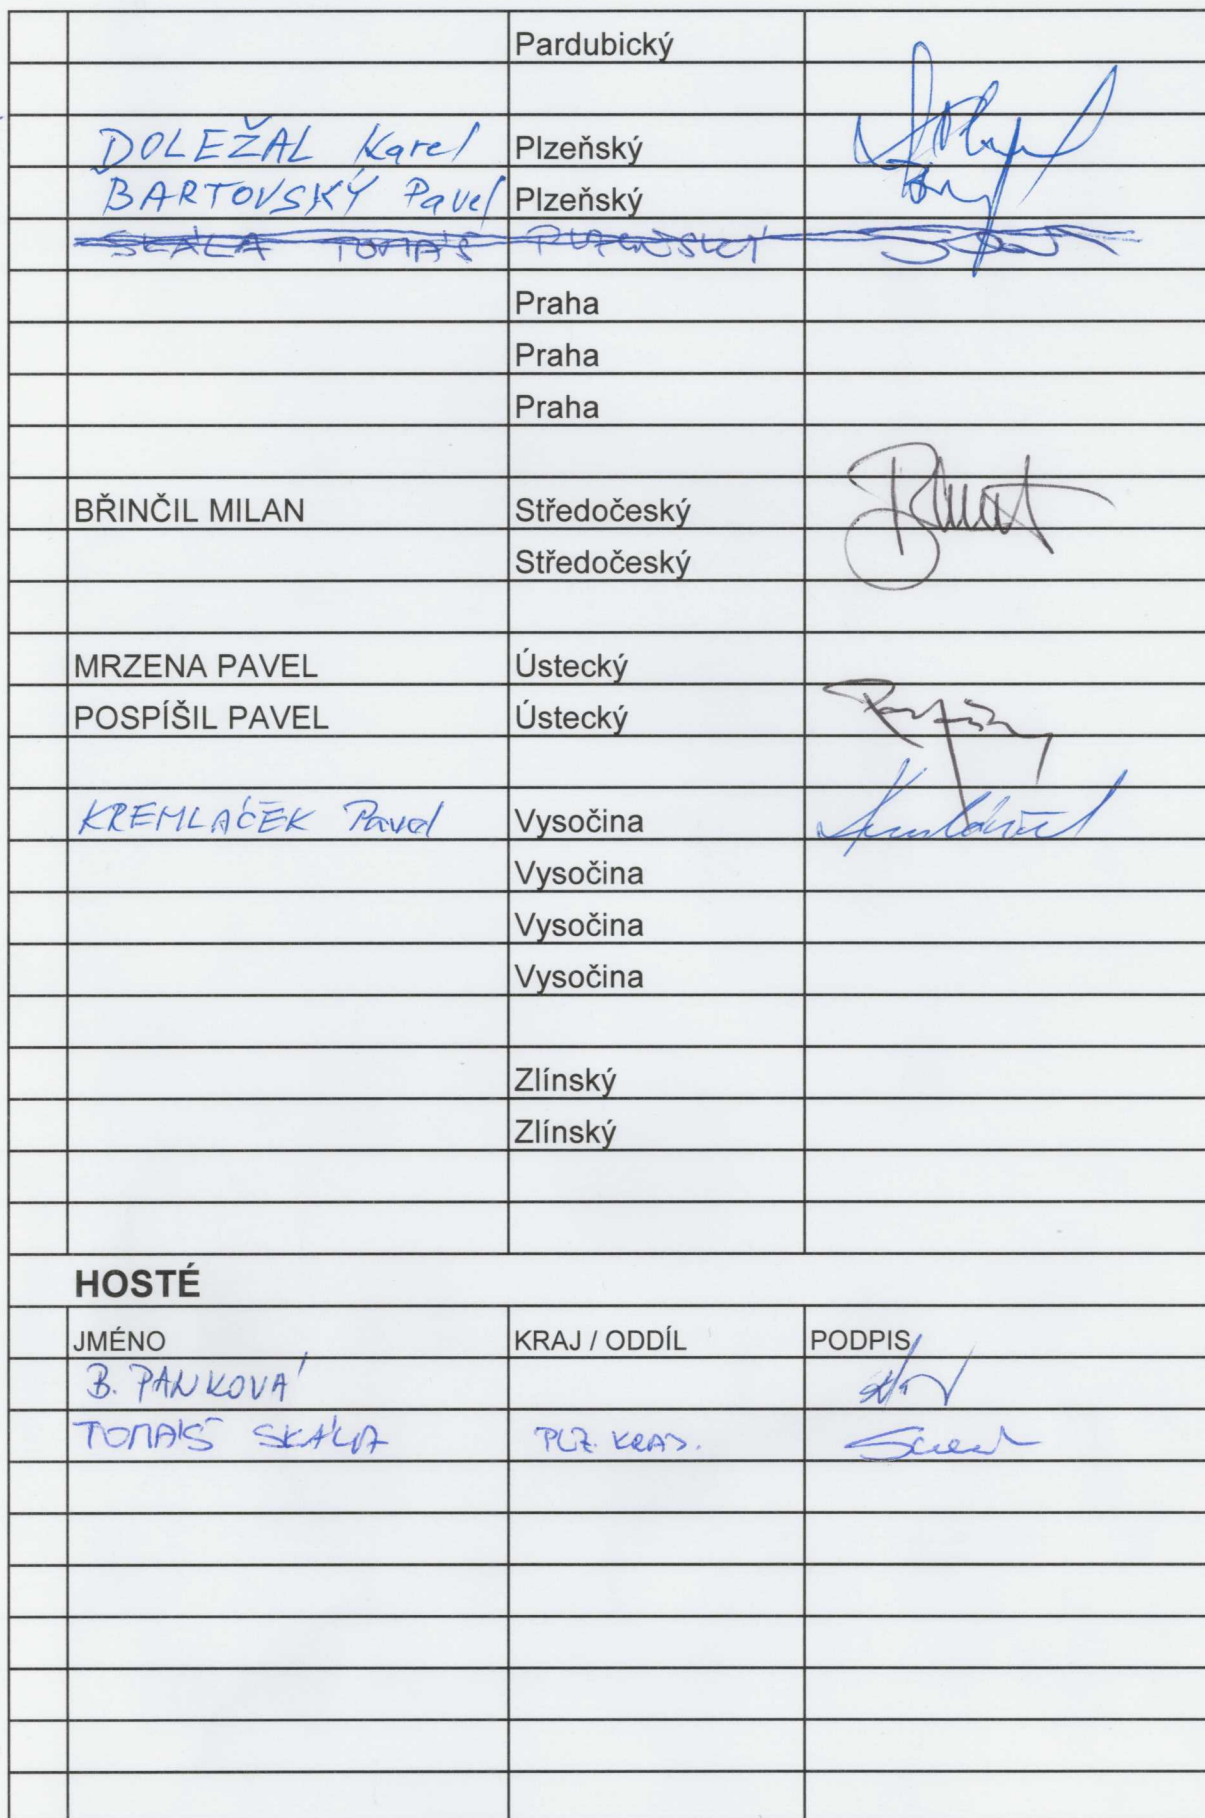 Pardubický
DOLEŽAL Karel Plzeňský
BARTOVSKÝ Pavel Plzeňský
SKÁLA TOMÁŠ PLZEŇSKÝ
Praha
Praha
Praha
BŘINČIL MILAN Středočeský
Středočeský
MRZENA PAVEL Ústecký
POSPÍŠIL PAVEL Ústecký
KREMLÁČEK Pavel Vysočina
Vysočina
Vysočina
Vysočina
Zlínský
Zlínský
HOSTÉ
JMÉNO KRAJ / ODDÍL PODPIS
B. PANKOVÁ
TOMÁŠ SKÁLA PLZ. KRAJ.